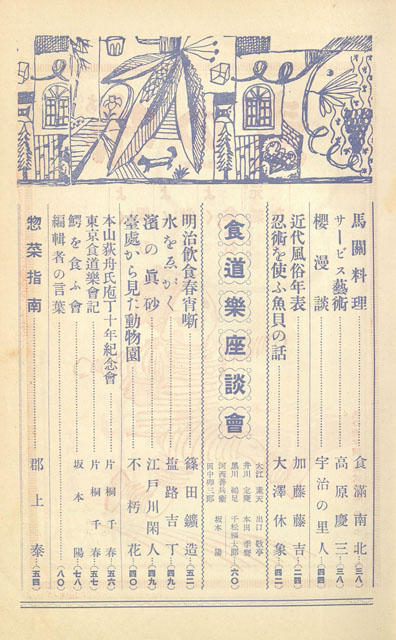 馬關料理 食滿南北 (三八)
サービス藝術 高原慶三 (三八)
櫻漫談 宇治の里人 (四四)
近代風俗年表 加藤藤吉 (二四)
忍術を使ふ魚貝の話 大澤休象 (四二)
食道樂座談會
大江素天 出口敬亭
井川定慶 本田季麿
黒川
千松
河西善兵衛 坂本陽
田中卯三郎
明治飲食春宵噺 篠田鑛造 (五二)
水をゑがく 塩路吉丁 (四九)
濱の眞砂 江戸川閑人 (四九)
臺處から見た動物園 不朽花 (四〇)
本山荻舟氏庖丁十年紀念會 片桐千春 (五六)
東京食道樂會記 片桐千春 (五七)
鰐を食ふ會 坂本陽 (七八)
編輯者の言葉 (八〇)
惣菜指南 郡上泰 (五四)